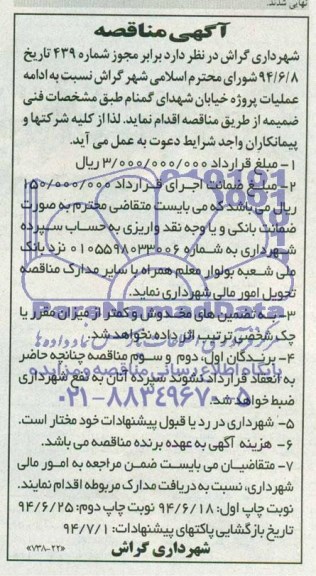 نهایی شدند.
آگهی مناقصه
شهرداری گراش در نظر دارد برابر مجوز شماره ۴۳۹ تاریخ
۹۴/۶/۸ شورای محترم اسلامی شهر گراش نسبت به ادامه
عملیات پروژه خیابان شهدای گمنام طبق مشخصات فنی
ضمیمه از طریق مناقصه اقدام نماید. لذا از کلیه شرکتها و
پیمانکاران واجد شرایط دعوت به عمل می آید.
۱- مبلغ قرارداد ۳/۰۰۰/۰۰۰/۰۰۰ ریال
۲- مبلغ ضمانت اجرای قرارداد ۱۵۰/۰۰۰/۰۰۰
ریال می باشد که می بایست متقاضی محترم به صورت
ضمانت بانکی و یا وجه نقد واریزی به حساب سپرده
شهرداری به شماره ۰۱۰۵۵۹۸۰۳۳۰۰۶ نزد بانک
ملی شعبه بولوار معلم همراه با سایر مدارک مناقصه
تحویل امور مالی شهرداری نماید.
۳- به تضمین های مخدوش و کمتر از میزان مقرر یا
چک شخصی ترتیب اثر داده نخواهد شد.
۴- برندگان اول، دوم و سوم مناقصه چنانچه حاضر
به انعقاد قرارداد نشوند سپرده آنان به نفع شهرداری
ضبط خواهد شد.
۵- شهرداری در رد یا قبول پیشنهادات خود مختار است.
۶- هزینه آگهی به عهده برنده مناقصه می باشد.
۷- متقاضیان می بایست ضمن مراجعه به امور مالی
شهرداری، نسبت به دریافت مدارک مربوطه اقدام نمایند.
نوبت چاپ اول: ۹۴/۶/۱۸ نوبت چاپ دوم: ۹۴/۶/۲۵
تاریخ بازگشایی پاکتهای پیشنهادات: ۹۴/۷/۱
شهرداری گراش
«۷۳۸-۲۲»
پایگاه اطلاع رسانی مناقصه و مزایده
۰۲۱-۸۸۳۴۹۶۷۰-۵